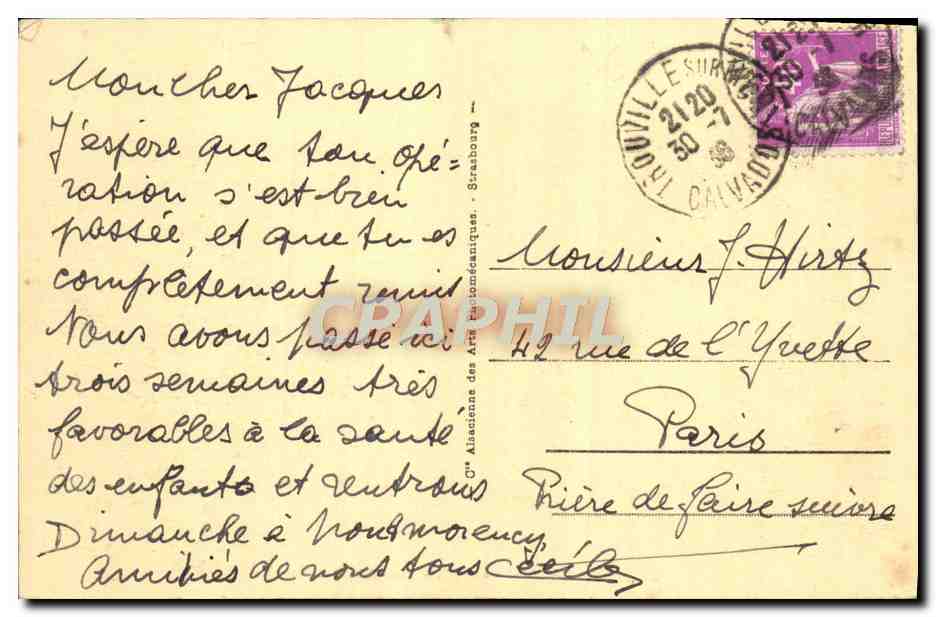 Mon cher Jacques
J'espère que ton opé=
ration s'est bien
passée, et que tu es
complètement remis
Nous avons passé ici
trois semaines très
favorables à la santé
des enfants et rentrons
Dimanche à Montmorency
Amitiés de nous tous Cécile
Cie Alsacienne des Arts Photomécaniques. - Strasbourg -
TROUVILLE SUR MER
21 20
30 -7
36
CALVADOS
21 2
30 -7
36
CALVADOS
Monsieur J. Hirtz
42 rue de l'Yvette
Paris
Prière de faire suivre
CPAPHIL